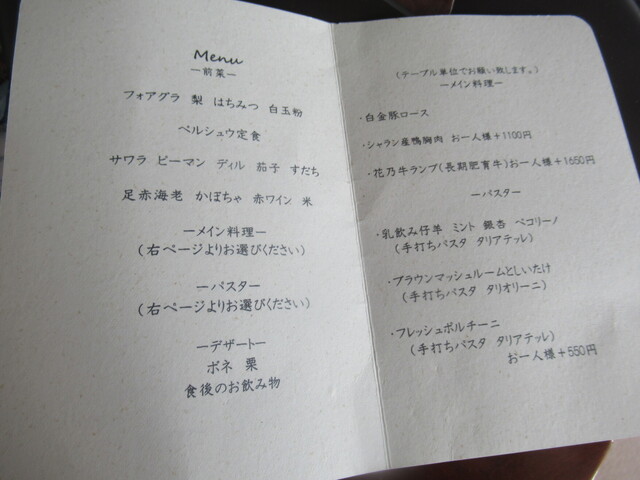 Menu
ー前菜ー
フォアグラ 梨 はちみつ 白玉粉
ペルシュウ定食
サワラ ピーマン ディル 茄子 すだち
足赤海老 かぼちゃ 赤ワイン 米
ーメイン料理ー
(右ページよりお選びください)
ーパスター
(右ページよりお選びください)
ーデザートー
ボネ 栗
食後のお飲み物
(テーブル単位でお願い致します。)
ーメイン料理ー
・白金豚ロース
・シャラン産鴨胸肉 お一人様+1100円
・花乃牛ランプ(長期肥育牛)お一人様+1650円
ーパスター
・乳飲み仔羊 ミント 銀杏 ペコリーノ
(手打ちパスタ タリアテッレ)
・ブラウンマッシュルームとしいたけ
(手打ちパスタ タリオリーニ)
・フレッシュポルチーニ
(手打ちパスタ タリアテッレ)
お一人様+550円